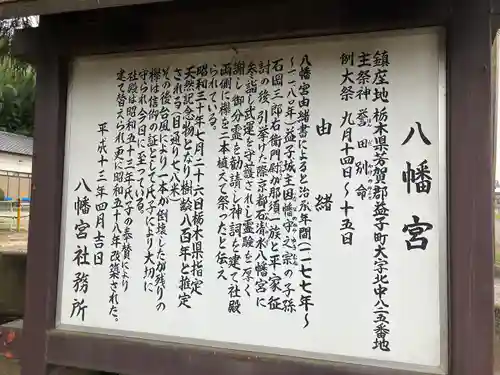 八幡宮
鎮座地 栃木県芳賀郡益子町大字北中八二五番地
主祭神 誉田別命
例大祭 九月十四日〜十五日
由緒
八幡宮由緒書によると治承年間(一一七七年〜
一一八〇年)益子城主因幡守之宗の子孫
石岡三郎右衛門尉が那須一族と平家征
討の後、引き挙げた際京都石清水八幡宮に
参詣し武運を守護されし霊験を厚く
謝し御分霊を勧請し神詞を建て社殿
両側に欅を二本植えて祭ったと伝え
られている。
昭和三十年七月二十六日栃木県指定
天然記念物となり樹齢八百年と推定
される(目通りで八米)
その後台風により一本が倒壊したが残りの
欅は信仰の証として氏子により大切に
守られ今日に至っている。
社殿は昭和五十三年、氏子の奉賛により
建て替えられ更に昭和五十八年改築された。
平成十三年四月吉日
八幡宮社務所